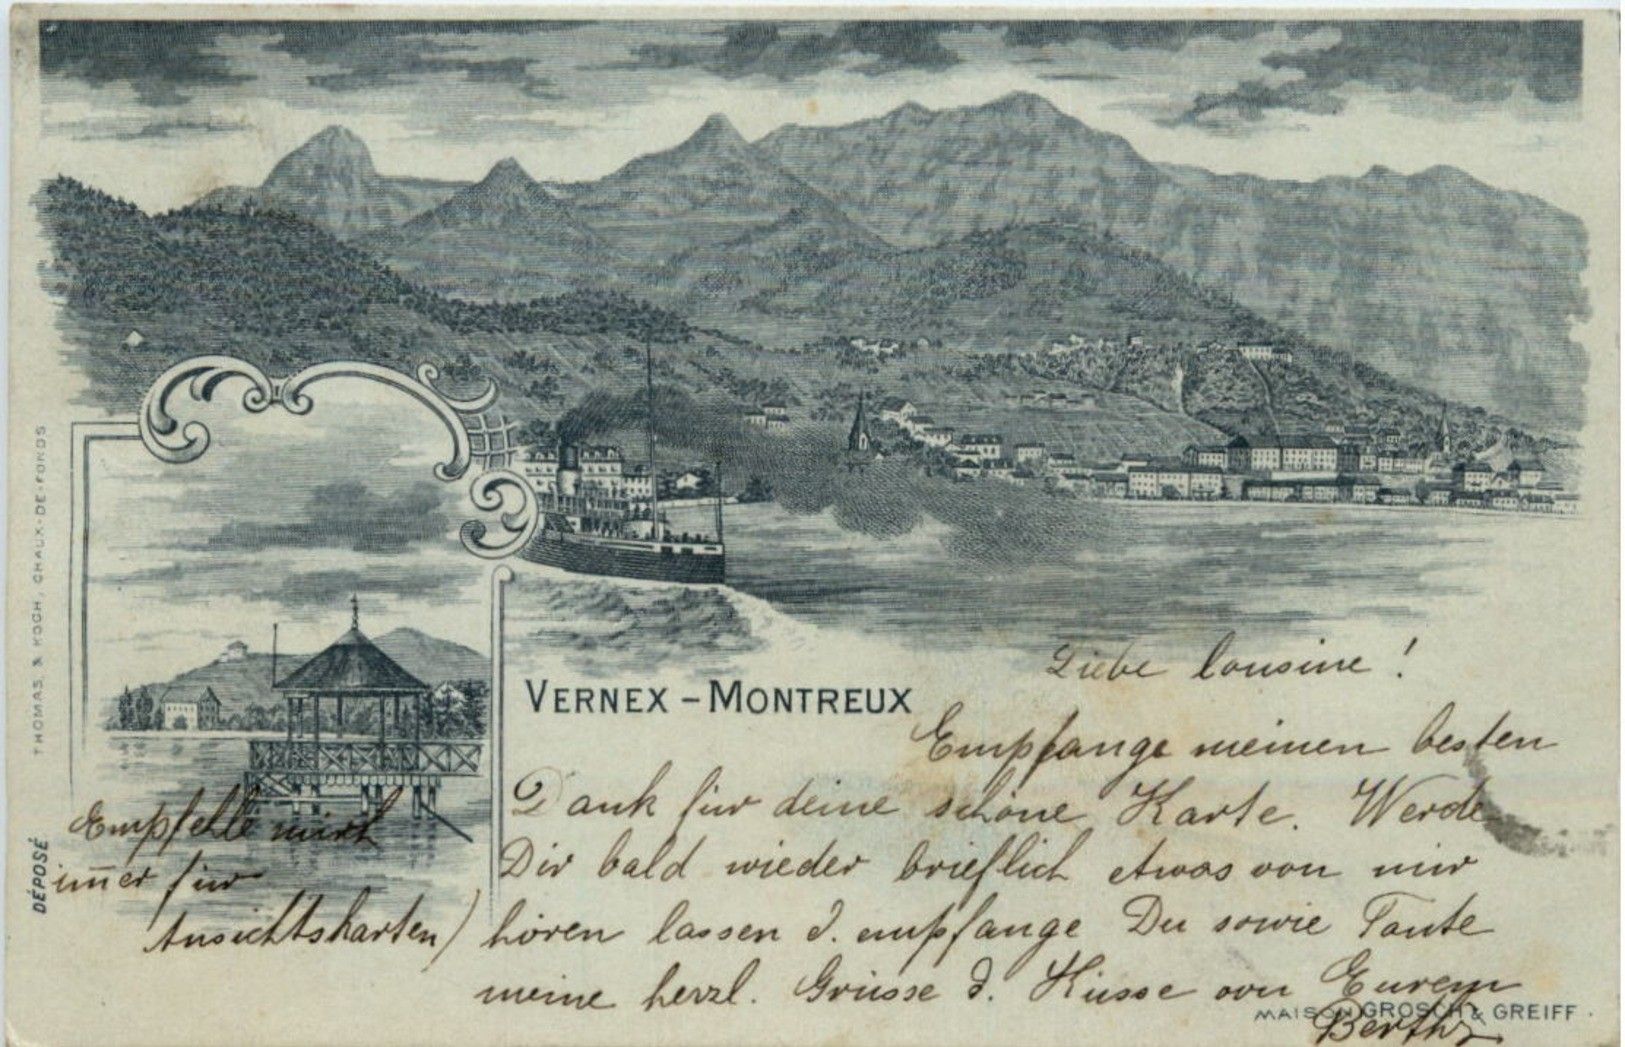 THOMAS & KOCH, CHAUX-DE-FONDS
DÉPOSÉ
VERNEX – MONTREUX
Liebe Cousine !
Empfange meinen besten
Dank für deine schöne Karte. Werde
Dir bald wieder brieflich etwas von mir
hören lassen u. empfange Du sowie Tante
meine herzl. Grüsse u. Küsse von Eurem
Empfehle mich
im̅er für
Ansichtskarten)
MAISON GROSCH & GREIFF .